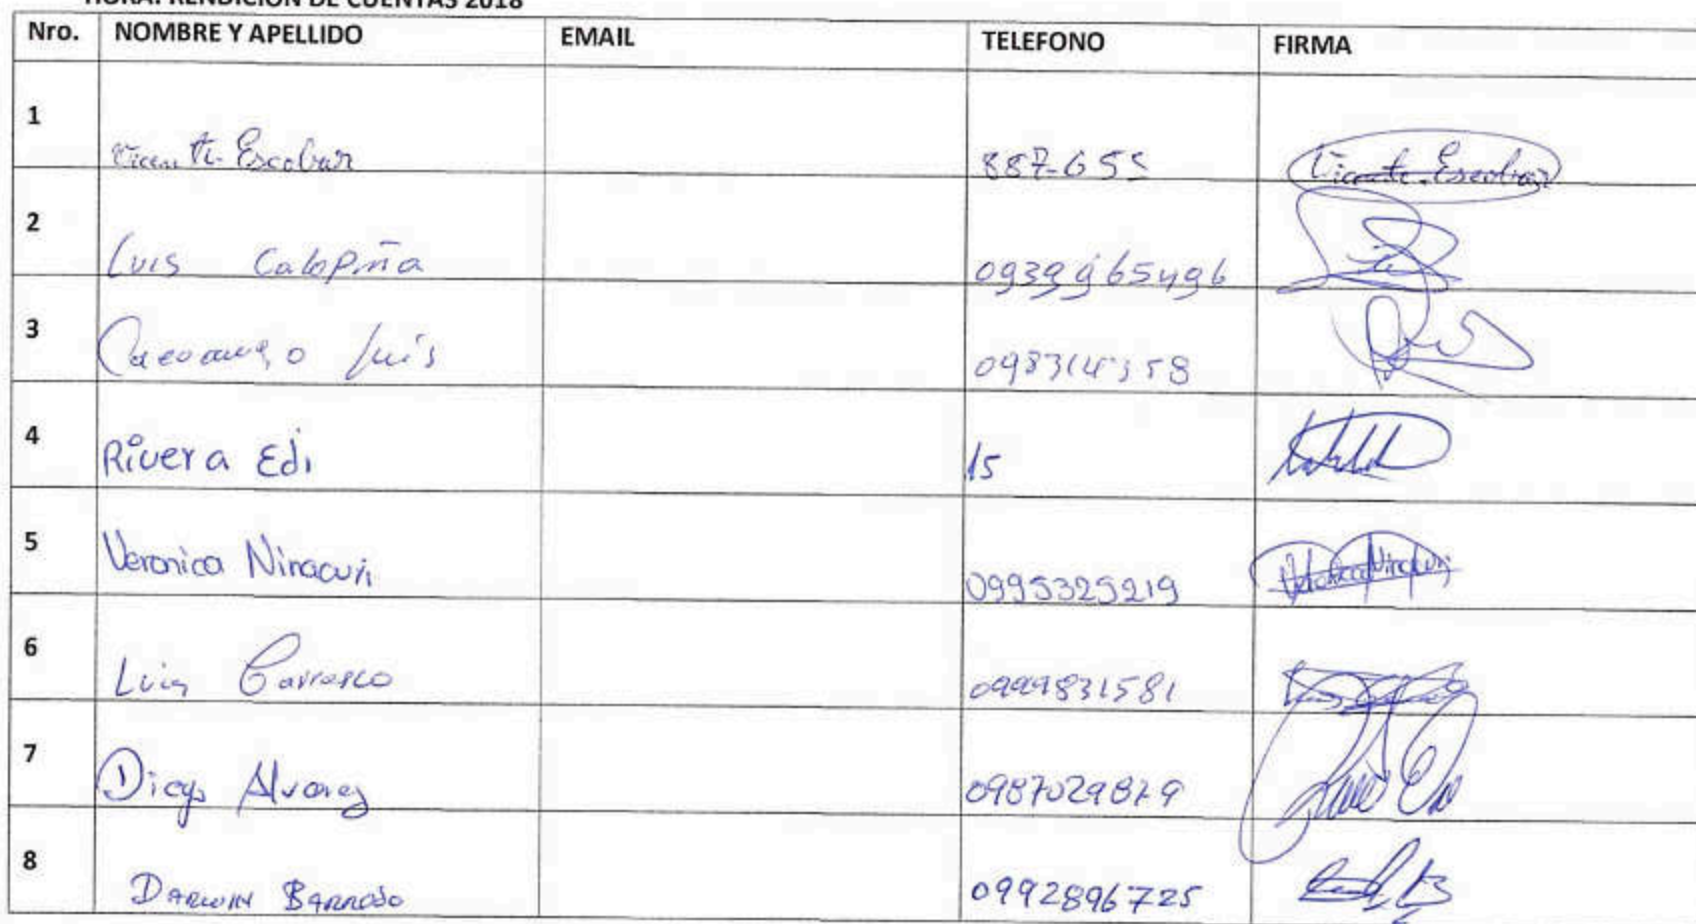 HORA: RENDICION DE CUENTAS 2018
Nro. NOMBRE Y APELLIDO EMAIL TELEFONO FIRMA
1 Vicente Escobar 887-655 Vicente Escobar
2 Luis Calopiña 0939965496
3 Luis
4 Rivera Edi 15
5 Veronica Ninacuri 0995325219 Veronica Ninacuri
6 Luis Carrasco 0999831581
7 Diego Alvarez 0987029879
8 DARWIN BARROSO 0992896725